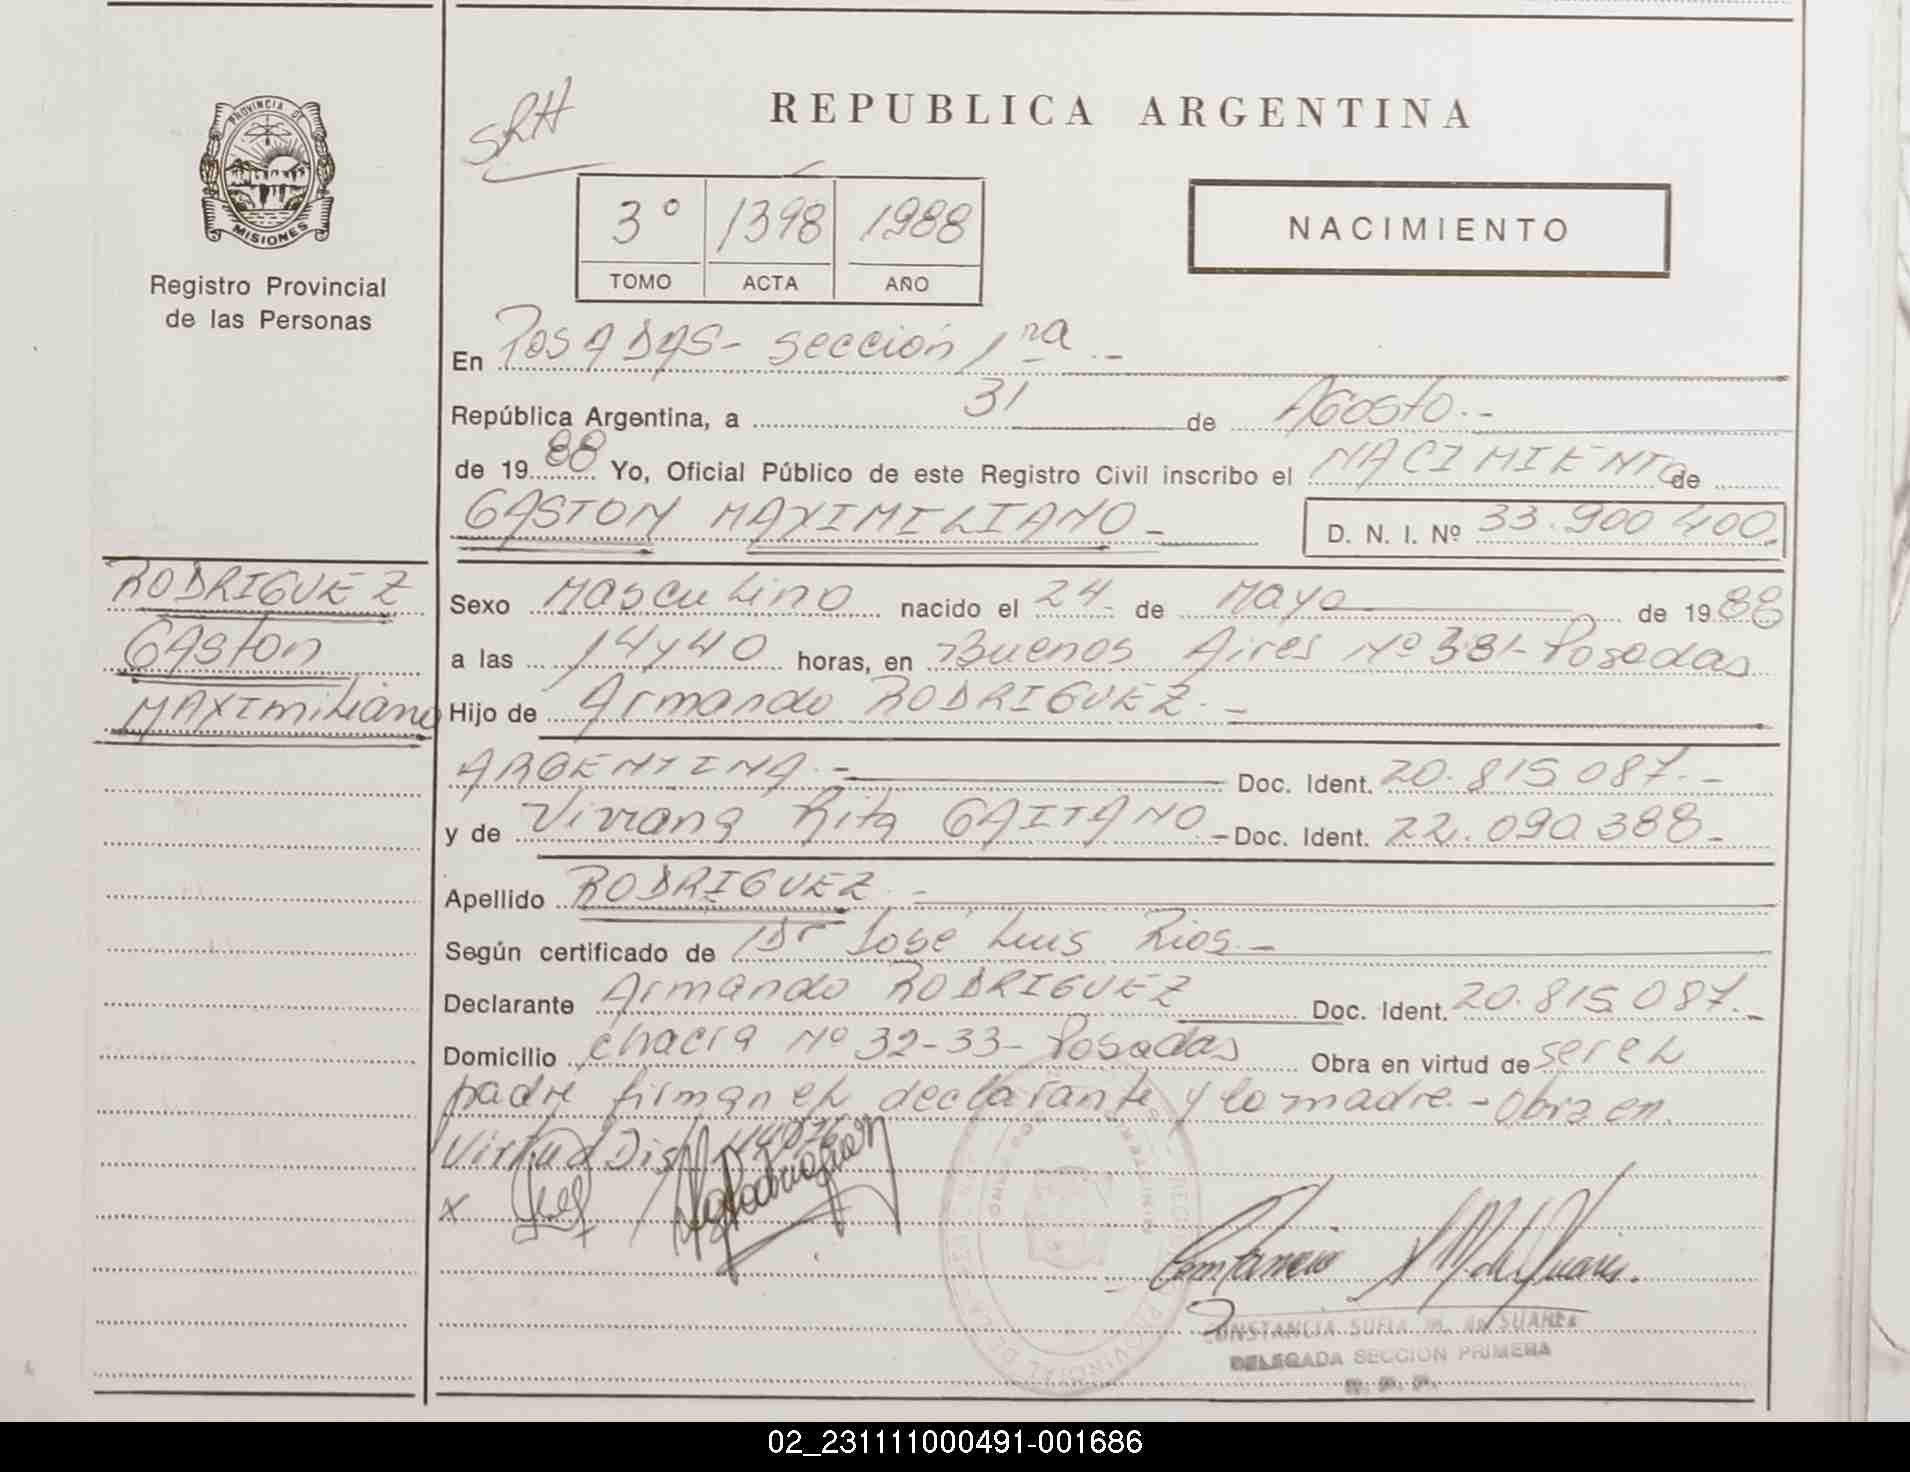 PROVINCIA DE
MISIONES
Registro Provincial
de las Personas
SRH
REPUBLICA ARGENTINA
3º 1398 1988
TOMO ACTA AÑO
NACIMIENTO
En POSADAS- sección 1ra.-
República Argentina, a 31 de Agosto.-
de 1988 Yo, Oficial Público de este Registro Civil inscribo el NACIMIENTO de
GASTON MAXIMILIANO-
D. N. I. Nº 33.900 400.
RODRIGUEZ
Gaston
MAXImiliano
Sexo Masculino nacido el 24 de Mayo de 1988
a las 14 y 40 horas, en Buenos Aires Nº 381- Posadas
Hijo de Armando RODRIGUEZ.-
ARGENTINA.- Doc. Ident. 20.815 087.-
y de Viviana Rita GAITANO.- Doc. Ident. 22.090.388-
Apellido RODRIGUEZ.-
Según certificado de Dr José Luis Rios.-
Declarante Armando RODRIGUEZ Doc. Ident. 20.815 087.-
Domicilio chacra Nº 32-33- Posadas Obra en virtud de ser el
padre firman el declarante y la madre.- Obra en
Virtud Dis
x
CONSTANCIA SOFIA M. de SUAREZ
DELEGADA SECCION PRIMERA
R. P. P.
02_231111000491-001686